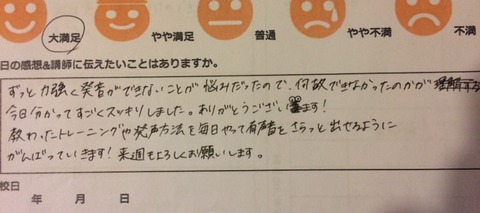 大満足 やや満足 普通 やや不満 不満
日の感想&講師に伝えたいことはありますか。
ずっと力強く発音ができないことが悩みだったので、何故できなかったのかが理解する
今日分かってすごくスッキリしました。ありがとうございます!
教わったトレーニングや発声方法を毎日やって有声音をさらっと出せるように
がんばっていきます!来週もよろしくお願いします。
校日
年 月 日